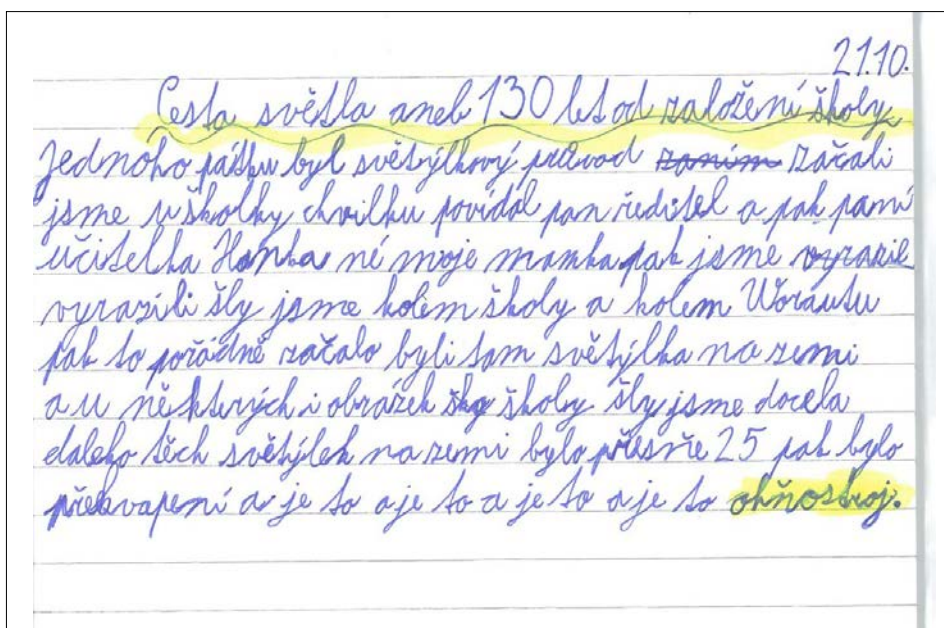 21.10.
Cesta světla aneb 130 let od založení školy
Jednoho pátku byl světýlkový průvod zanim začali
jsme u školky chvilku povídal pan ředitel a pak paní
učitelka Hanka né moje mamka pak jsme vyrazile
vyrazili šly jsme kolem školy a kolem Worautu
pak to pořádně začalo byli tam světýlka na zemi
a u některých i obrázek sko školy šly jsme docela
daleko těch světýlek na zemi bylo přesně 25 pak bylo
překvapení a je to a je to a je to a je to ohňostroj.